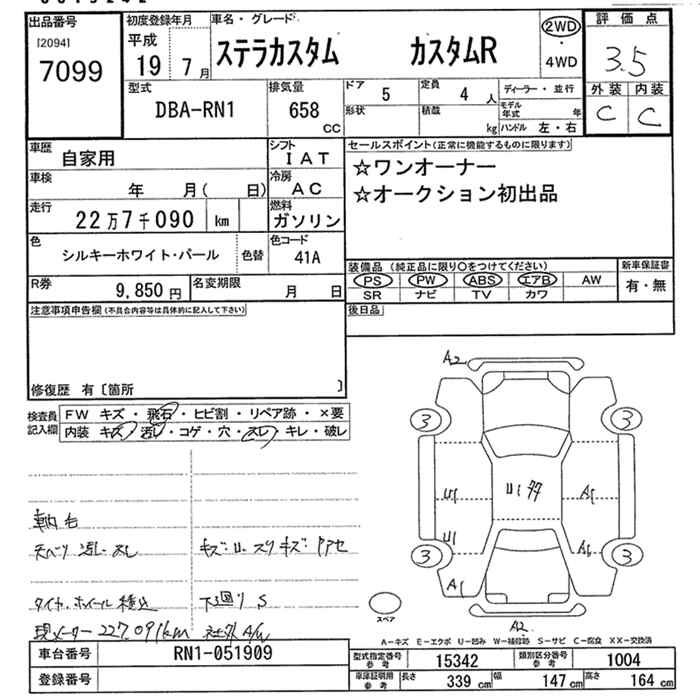 出品番号
[2094]
7099
初度登録年月
平成
19 7月
車名・グレード
ステラカスタム カスタムR
2WD
・
4WD
評価点
3.5
外装 内装
C C
型式
DBA-RN1
排気量
658
CC
ドア 5
定員 4 人
ディーラー・並行
形状
積載 kg
モデル年式 年
ハンドル 左・右
車歴
自家用
シフト
IAT
車検
年 月( 日)
冷房
AC
走行
22万7千090 km
燃料
ガソリン
色
シルキーホワイト・パール
色替
色コード
41A
R券
9,850円
名変期限
月 日
セールスポイント(正常に機能するものに限ります)
☆ワンオーナー
☆オークション初出品
装備品 (純正品に限り○をつけてください)
新車保証書
PS PW ABS エアB AW
SR ナビ TV カワ
有・無
注意事項申告欄(不具合内容等は具体的に記入して下さい)
後日品
修復歴 有〔箇所 〕
検査員記入欄
FW キズ・飛石・ヒビ割・リペア跡・×要
内装 キズ・汚れ・コゲ・穴・スレ・キレ・破レ
車内毛
タイヤ・ホイール積込
下廻りS
現メーター227,091km
社外A/W
A2
3 3
U1 A1
U1
3 3
A1
スペア
A2
A-キズ E-エクボ U-凹み W-補修跡 S-サビ C-腐食 XX-交換済
車台番号
RN1-051909
登録番号
型式指定番号 参考
15342
類別区分番号 参考
1004
車庫証明用 参考
長さ 339 cm
幅 147 cm
高さ 164 cm